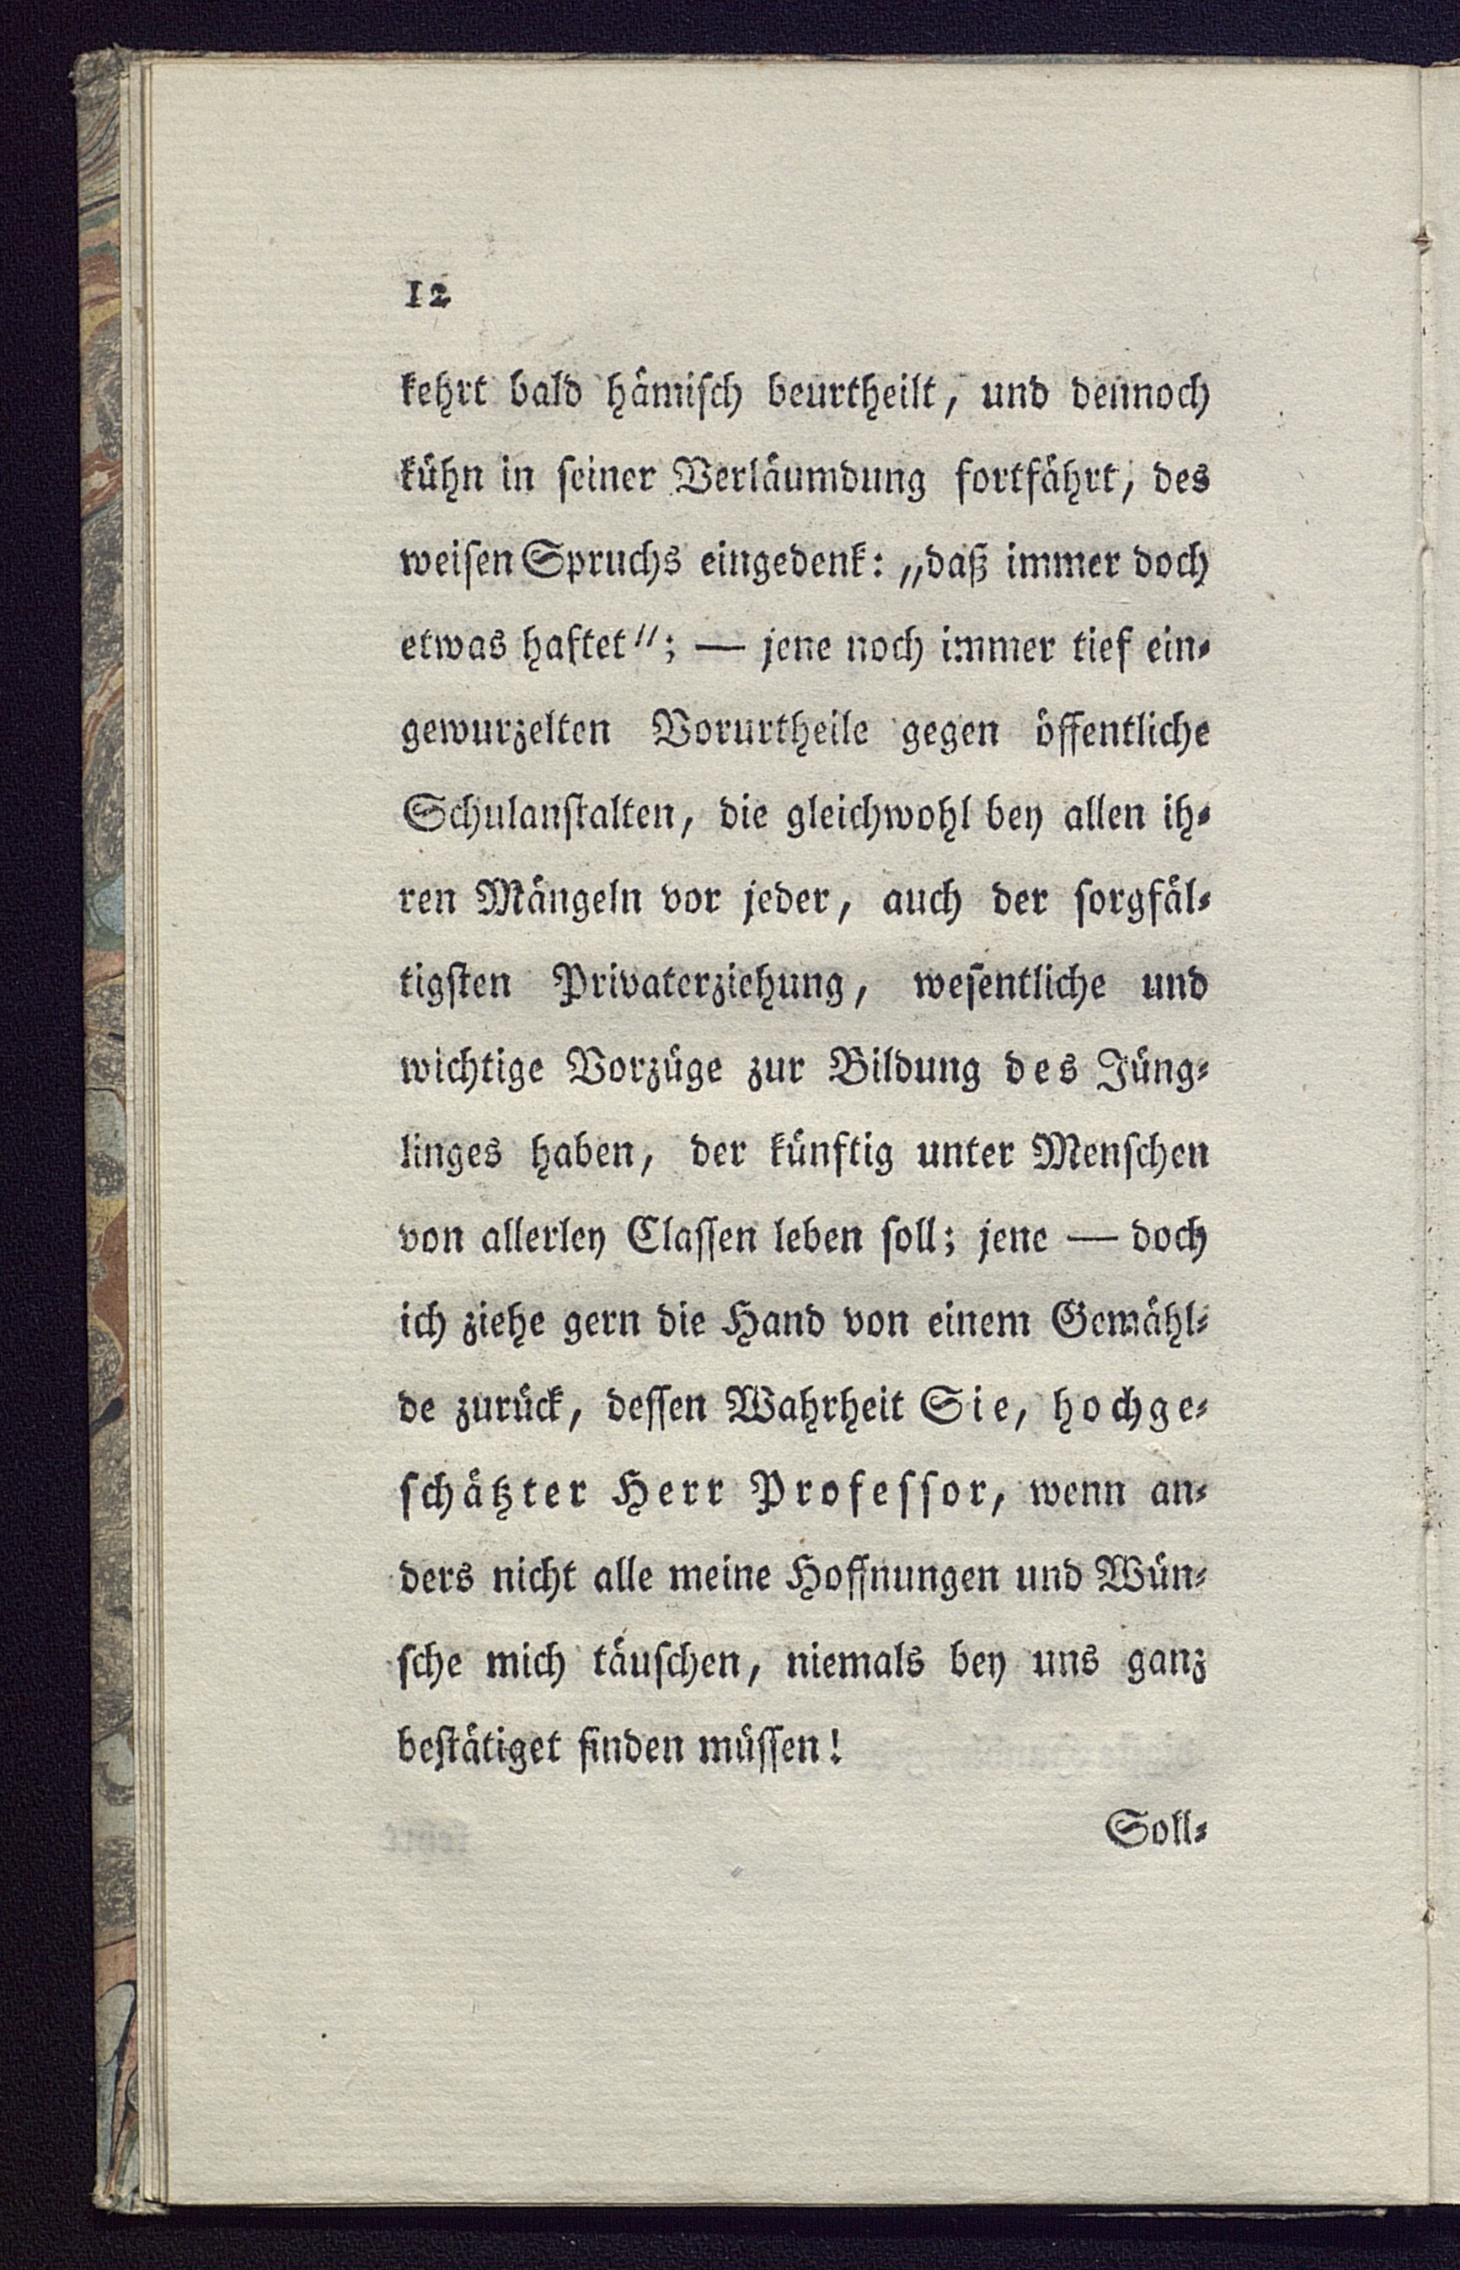 12
kehrt bald hämisch beurtheilt, und dennoch
kühn in seiner Verläumdung fortfährt, des
weisen Spruchs eingedenk: „daß immer doch
etwas haftet“; — jene noch immer tief ein-
gewurzelten Vorurtheile gegen öffentliche
Schulanstalten, die gleichwohl bey allen ih-
ren Mängeln vor jeder, auch der sorgfäl-
tigsten Privaterziehung, wesentliche und
wichtige Vorzüge zur Bildung des Jüng-
linges haben, der künftig unter Menschen
von allerley Classen leben soll; jene — doch
ich ziehe gern die Hand von einem Gemähl-
de zurück, dessen Wahrheit Sie, hochge-
schätzter Herr Professor, wenn an-
ders nicht alle meine Hoffnungen und Wün-
sche mich täuschen, niemals bey uns ganz
bestätiget finden müssen!
Soll-